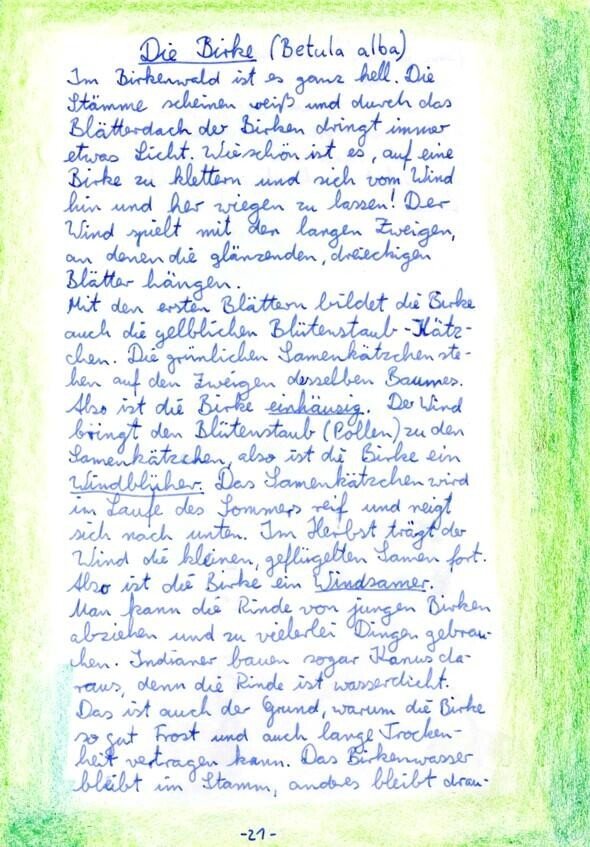 Die Birke (Betula alba)
Im Birkenwald ist es ganz hell. Die
Stämme scheinen weiß und durch das
Blätterdach der Birken dringt immer
etwas Licht. Wie schön ist es, auf eine
Birke zu klettern und sich vom Wind
hin und her wiegen zu lassen! Der
Wind spielt mit den langen Zweigen,
an denen die glänzenden, dreieckigen
Blätter hängen.
Mit den ersten Blättern bildet die Birke
auch die gelblichen Blütenstaub-Kätz-
chen. Die grünlichen Samenkätzchen ste-
hen auf den Zweigen desselben Baumes.
Also ist die Birke einhäusig. Der Wind
bringt den Blütenstaub (Pollen) zu den
Samenkätzchen, also ist die Birke ein
Windblüher. Das Samenkätzchen wird
im Laufe des Sommers reif und neigt
sich nach unten. Im Herbst trägt der
Wind die kleinen, geflügelten Samen fort.
Also ist die Birke ein Windsamer.
Man kann die Rinde von jungen Birken
abziehen und zu vielerlei Dingen gebrau-
chen. Indianer bauen sogar Kanus da-
raus, denn die Rinde ist wasserdicht.
Das ist auch der Grund, warum die Birke
so gut Frost und auch lange Trocken-
heit vertragen kann. Das Birkenwasser
bleibt im Stamm, anderes bleibt drau-
-21-